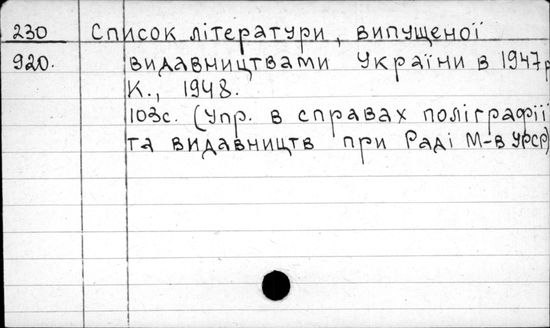 230 Список літератури, випущеної
920. видавництвами України в 1947р
К., 1948.
103с. (Упр. в справах поліграфії
та видавництв при Раді М-в УРСР)